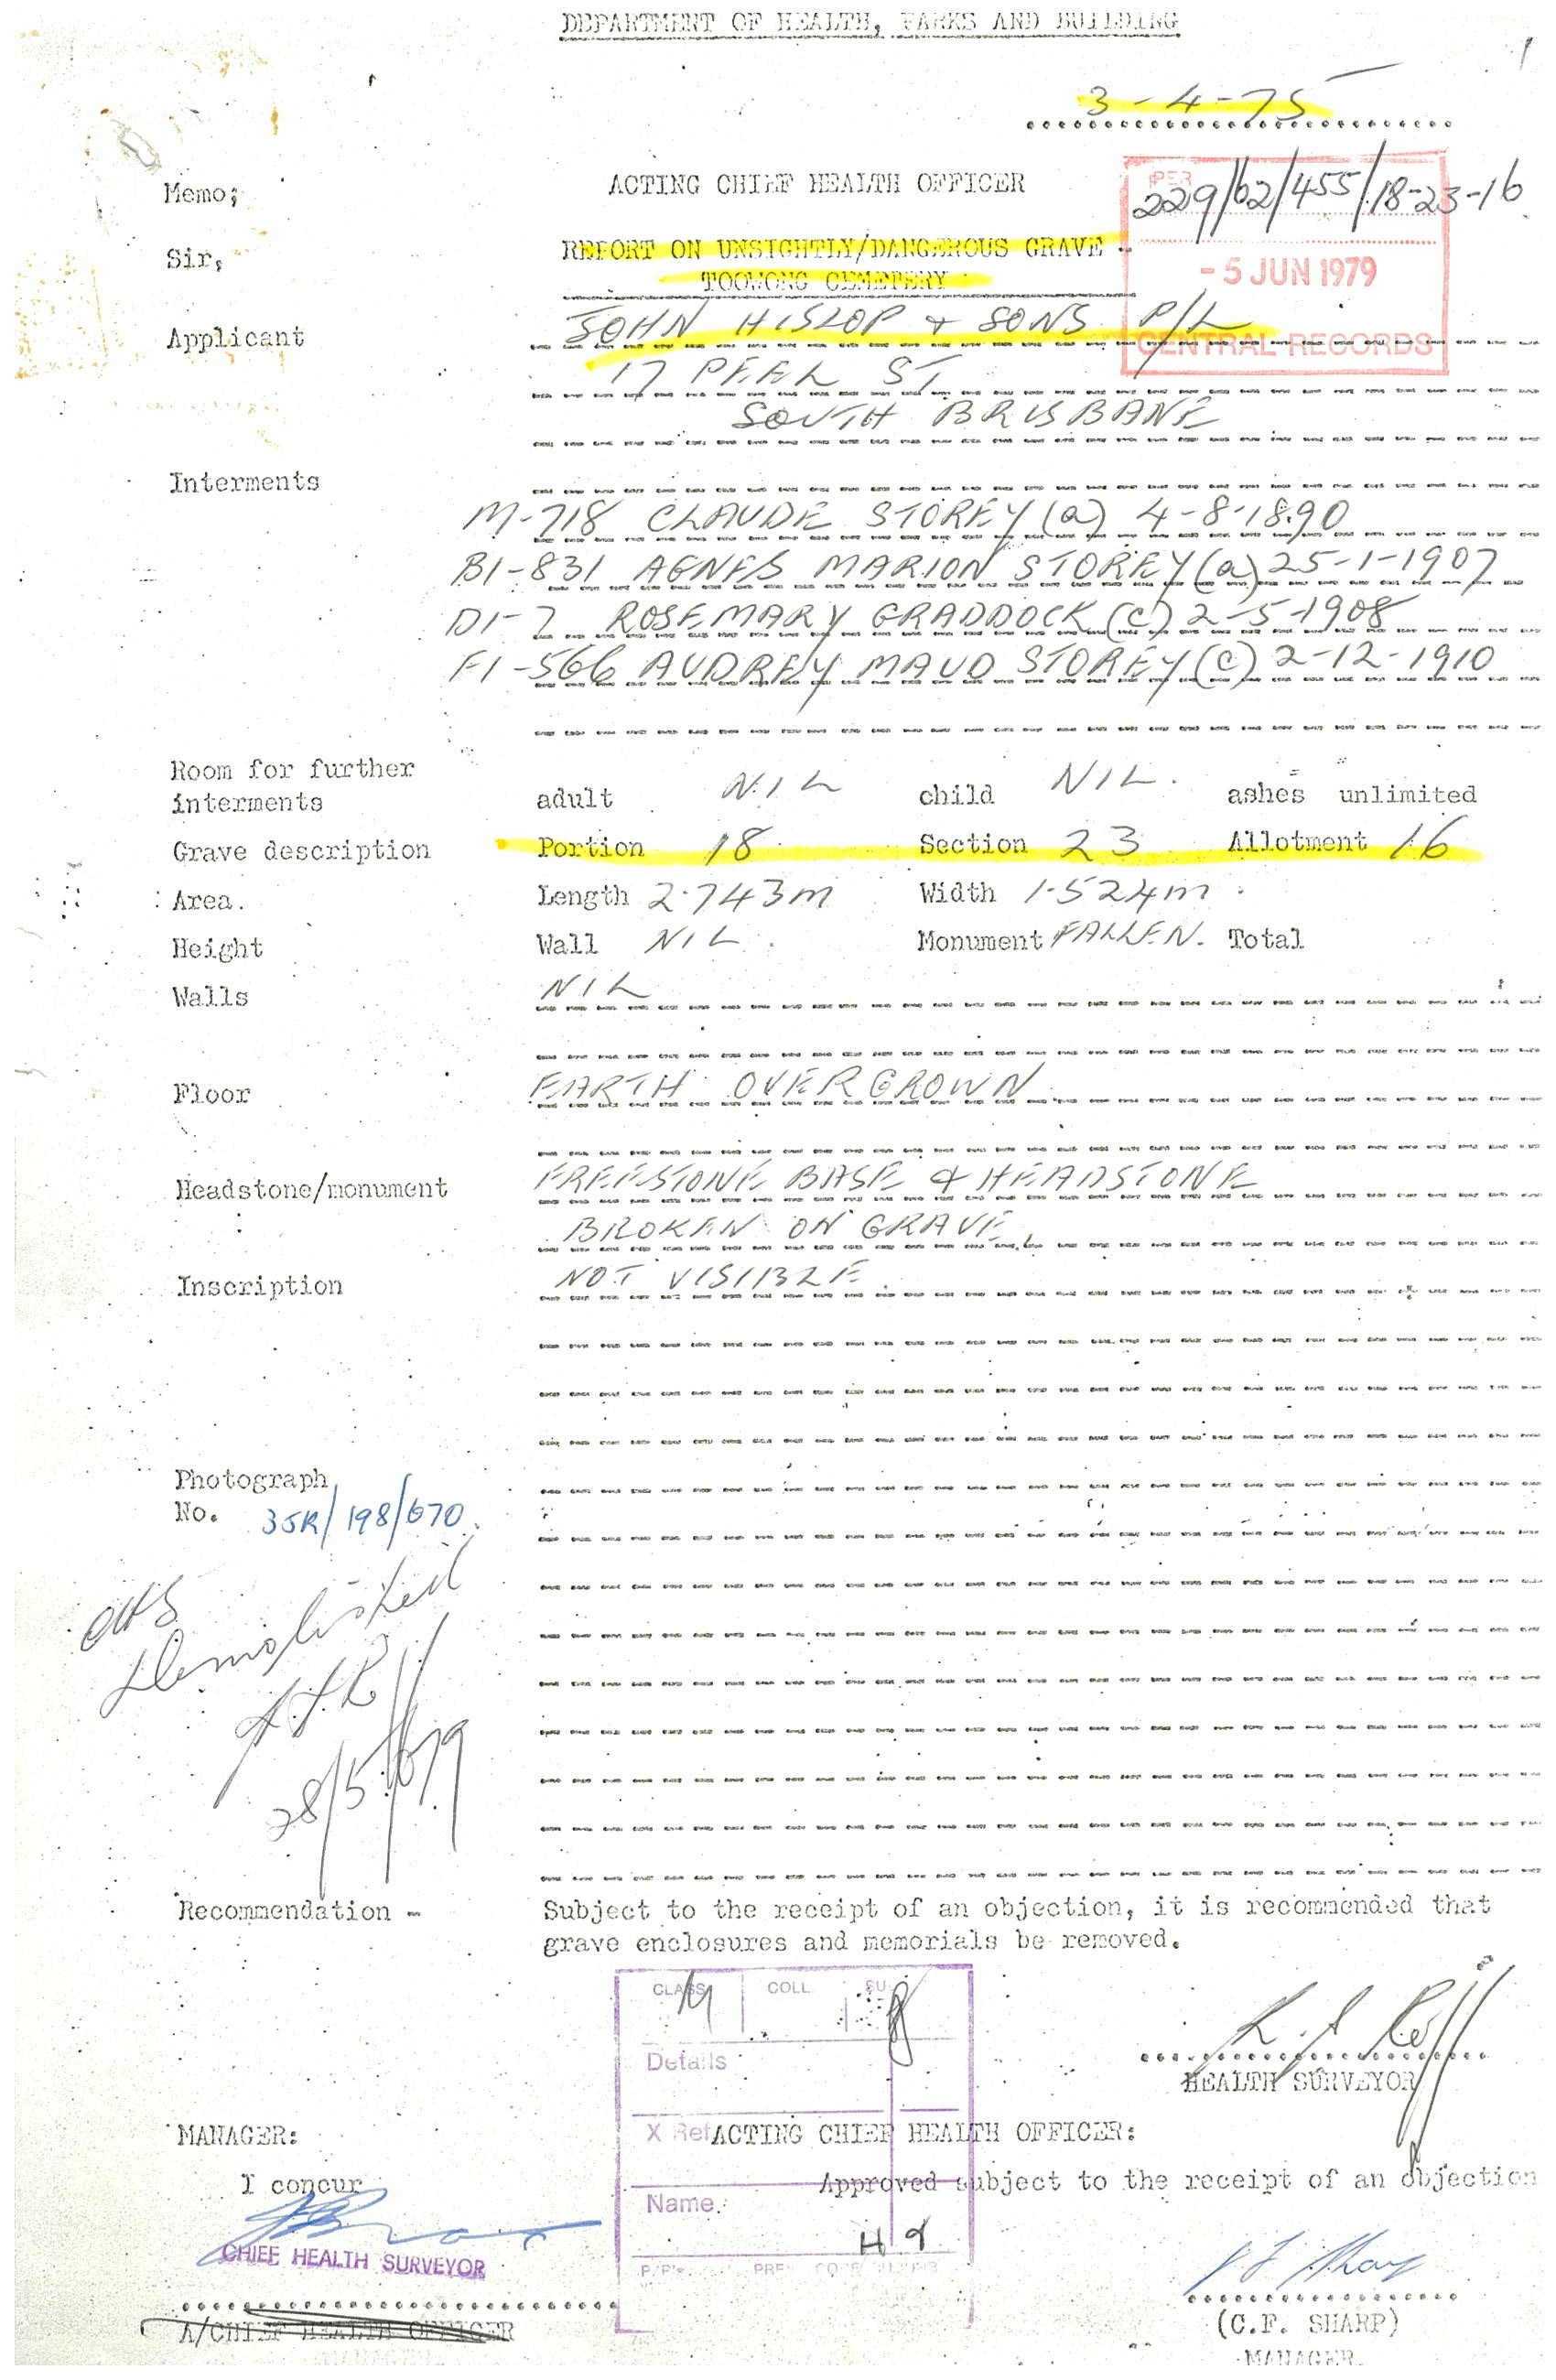 DEPARTMENT OF HEALTH, PARKS AND BUILDING
1
3-4-75
Memo; ACTING CHIEF HEALTH OFFICER
PER
229/62/455/18-23-16
Sir, REPORT ON UNSIGHTLY/DANGEROUS GRAVE -
TOOWONG CEMETERY
-5 JUN 1979
CENTRAL RECORDS
Applicant JOHN HISLOP & SONS P/L
17 PEEL ST
SOUTH BRISBANE
Interments
M-718 CLAUDE STOREY (a) 4-8-1890
B1-831 AGNES MARION STOREY (a) 25-1-1907
D1-7 ROSEMARY GRADDOCK (c) 2-5-1908
F1-566 AUDREY MAUD STOREY (c) 2-12-1910
Room for further
interments adult NIL child NIL. ashes unlimited
Grave description Portion 18 Section 23 Allotment 16
Area. Length 2.743m Width 1.524m
Height Wall NIL. Monument FALLEN. Total
Walls NIL
Floor EARTH OVERGROWN
Headstone/monument FREESTONE BASE & HEADSTONE
BROKEN ON GRAVE.
Inscription NOT VISIBLE.
Photograph
No. 35R/198/670.
Demolished
28/5/79
Recommendation - Subject to the receipt of an objection, it is recommended that
grave enclosures and memorials be removed.
CLASS M COLL SU
Details
HEALTH SURVEYOR
MANAGER: X Ref ACTING CHIEF HEALTH OFFICER:
I concur Approved subject to the receipt of an objection
Name
CHIEF HEALTH SURVEYOR
A/CHIEF HEALTH OFFICER
(C.F. SHARP)
MANAGER